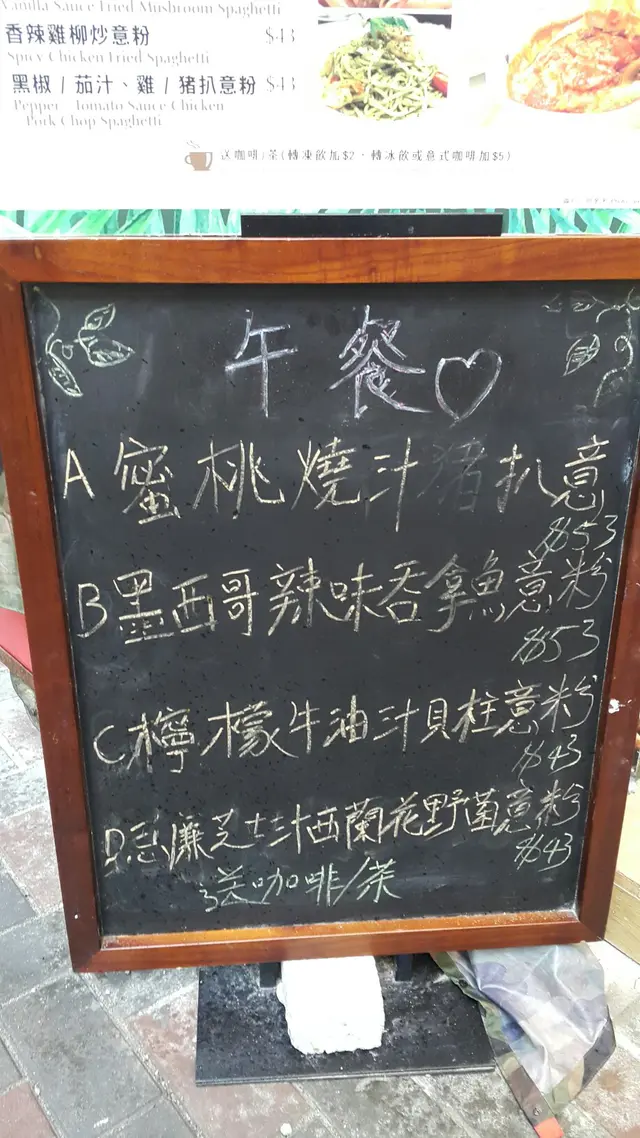 Vanilla Sauce Fried Mushroom Spaghetti
香辣雞柳炒意粉 $43
Spicy Chicken Fried Spaghetti
黑椒 / 茄汁、雞 / 豬扒意粉 $43
Pepper Tomato Sauce Chicken
Pork Chop Spaghetti
送咖啡/茶(轉凍飲加$2，轉冰飲或意式咖啡加$5)
午餐
A 蜜桃燒汁豬扒意
$53
B 墨西哥辣味吞拿魚意粉
$53
C 檸檬牛油汁貝柱意粉
$43
D 忌廉芝士汁西蘭花野菌意粉
$43
送咖啡/茶